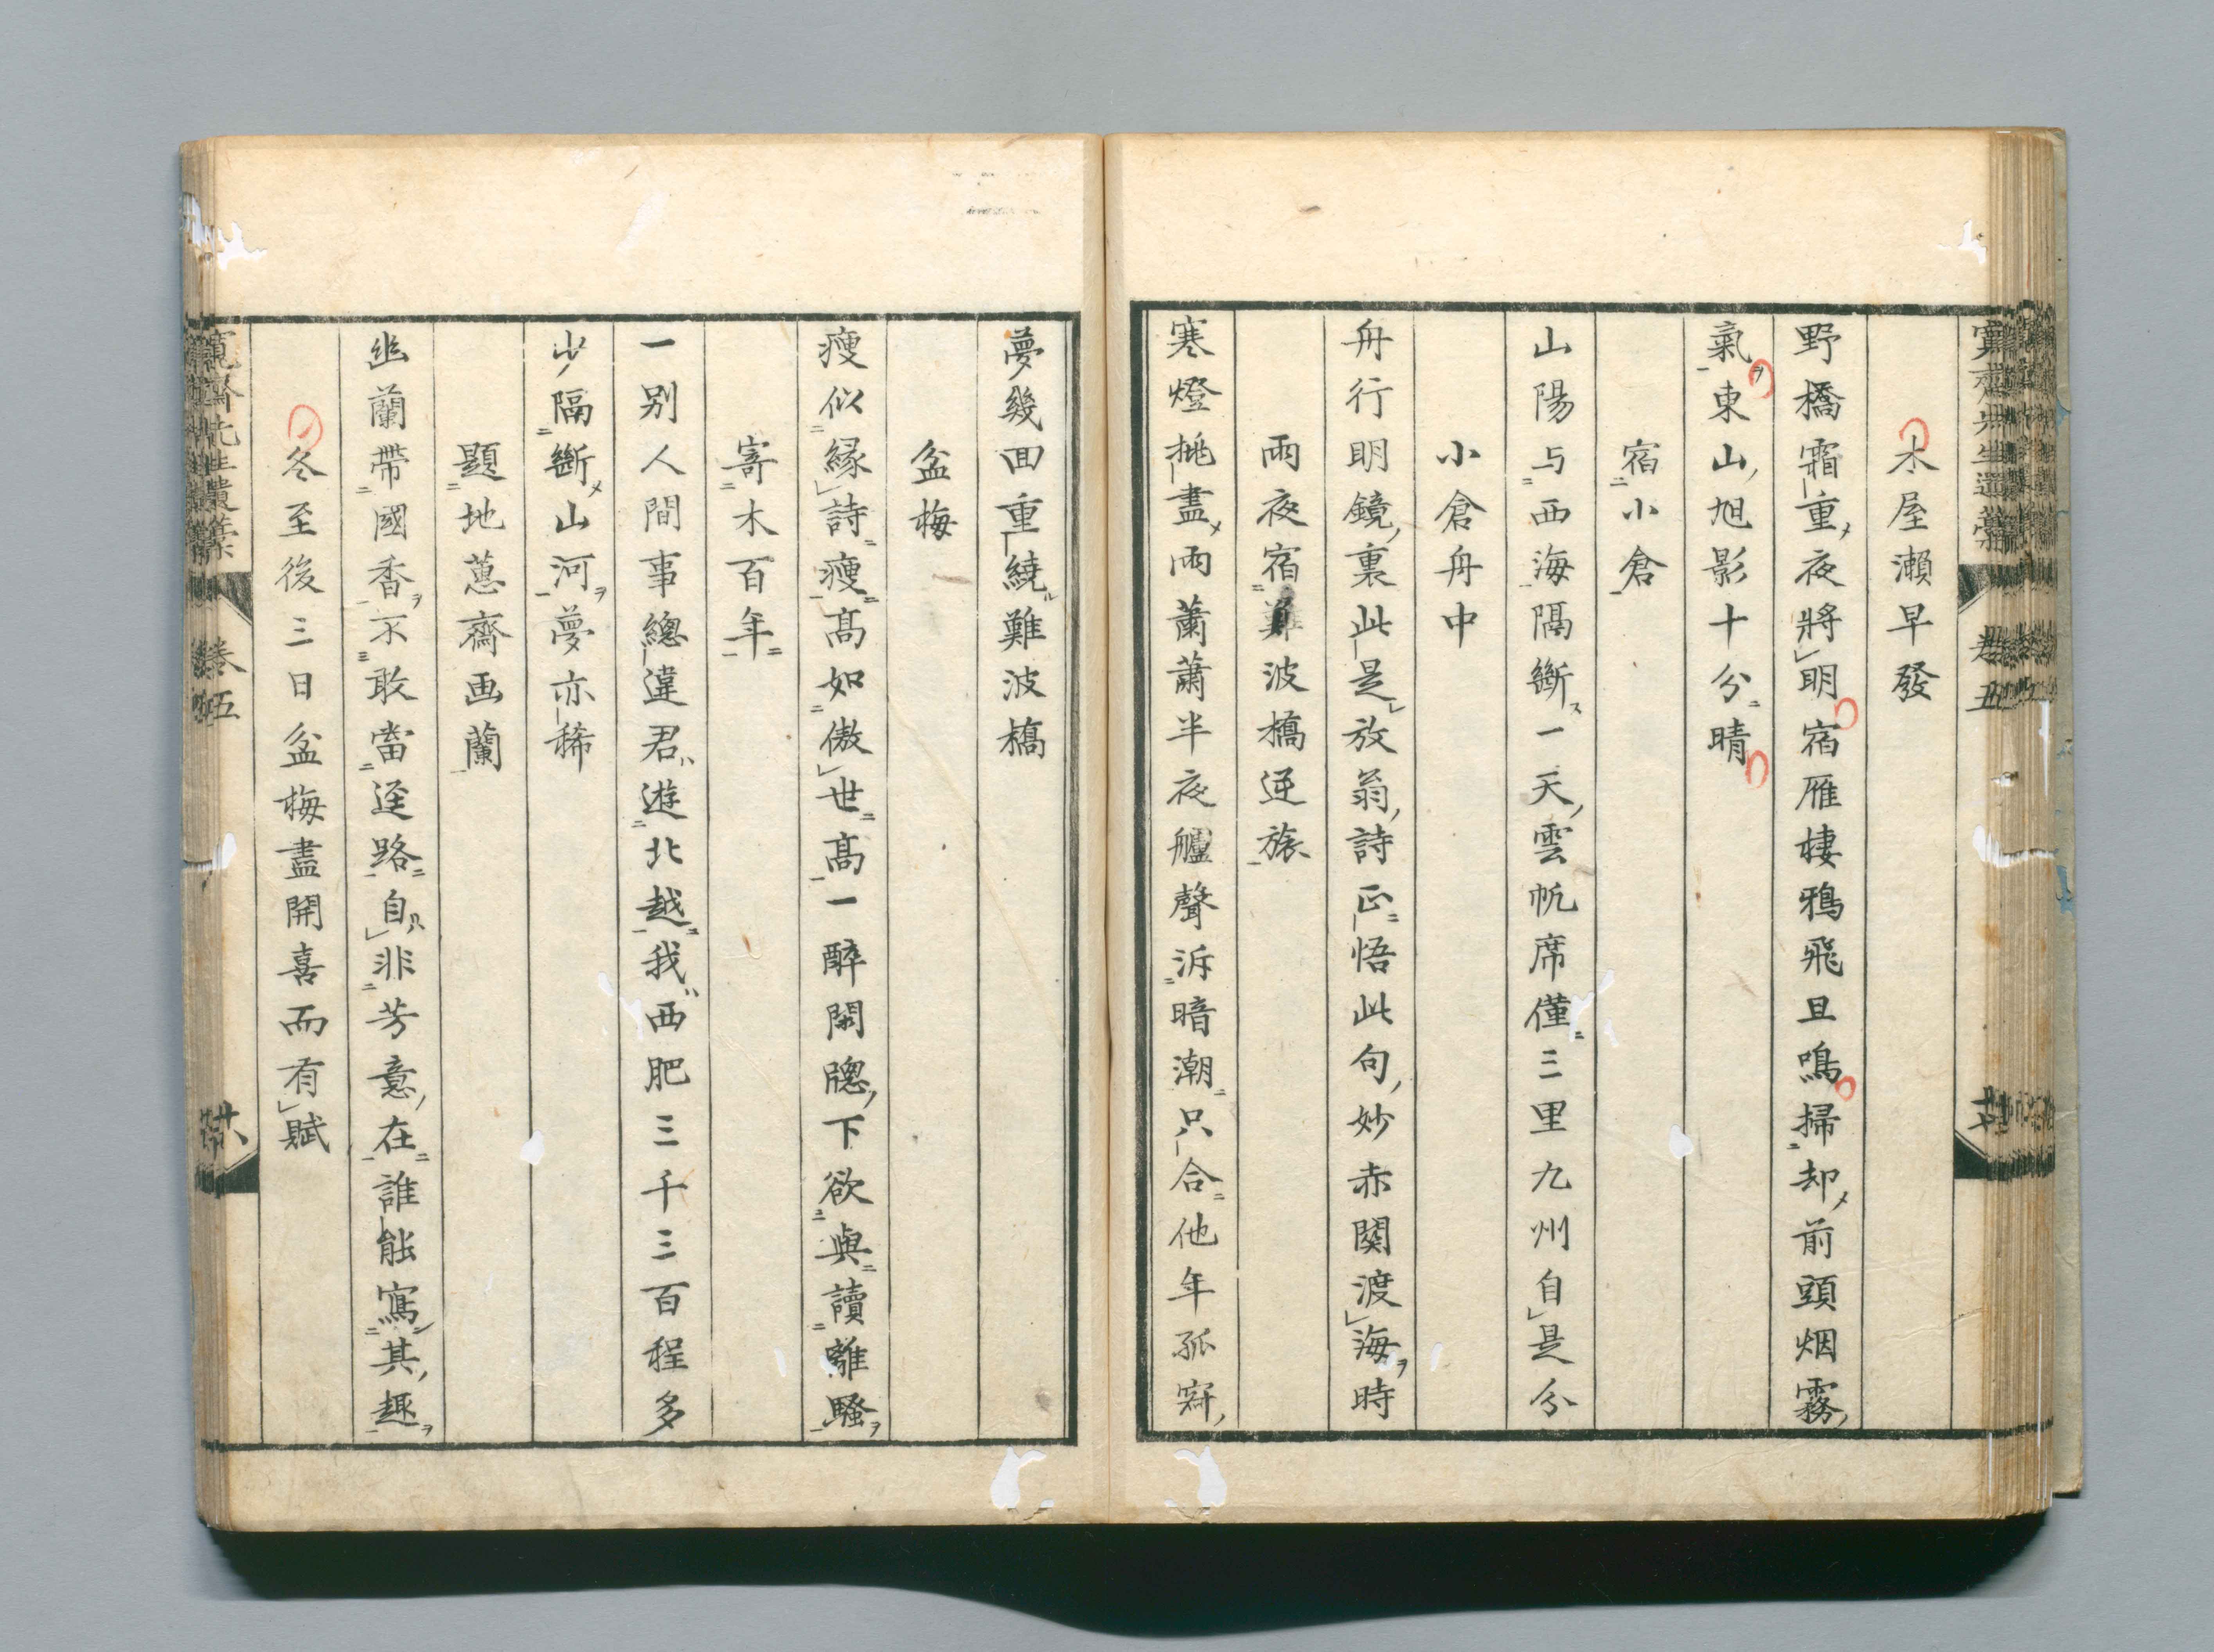 木屋瀬早發
野橋霜重夜將明宿雁棲鴉飛且鳴掃却前頭烟霧
氣東山旭影十分晴
宿小倉
山陽与西海隔斷一天雲帆席僅三里九州自是分
小倉舟中
舟行明鏡裏此是放翁詩正悟此句妙赤関渡海時
雨夜宿難波橋逆旅
寒燈挑盡雨蕭蕭半夜艫聲泝暗潮只合他年孤寐
夢幾回重繞難波橋
盆梅
瘦似緣詩瘦髙如傲世髙一醉閑牕下欲與讀離騷
寄木百年
一别人間事總違君遊北越我西肥三千三百程多
少隔斷山河夢亦稀
題地蕙齋画蘭
幽蘭帶國香不敢當逕路自非芳意在誰能寫其趣
冬至後三日盆梅盡開喜而有賦
寬齋先生遺稾 卷五